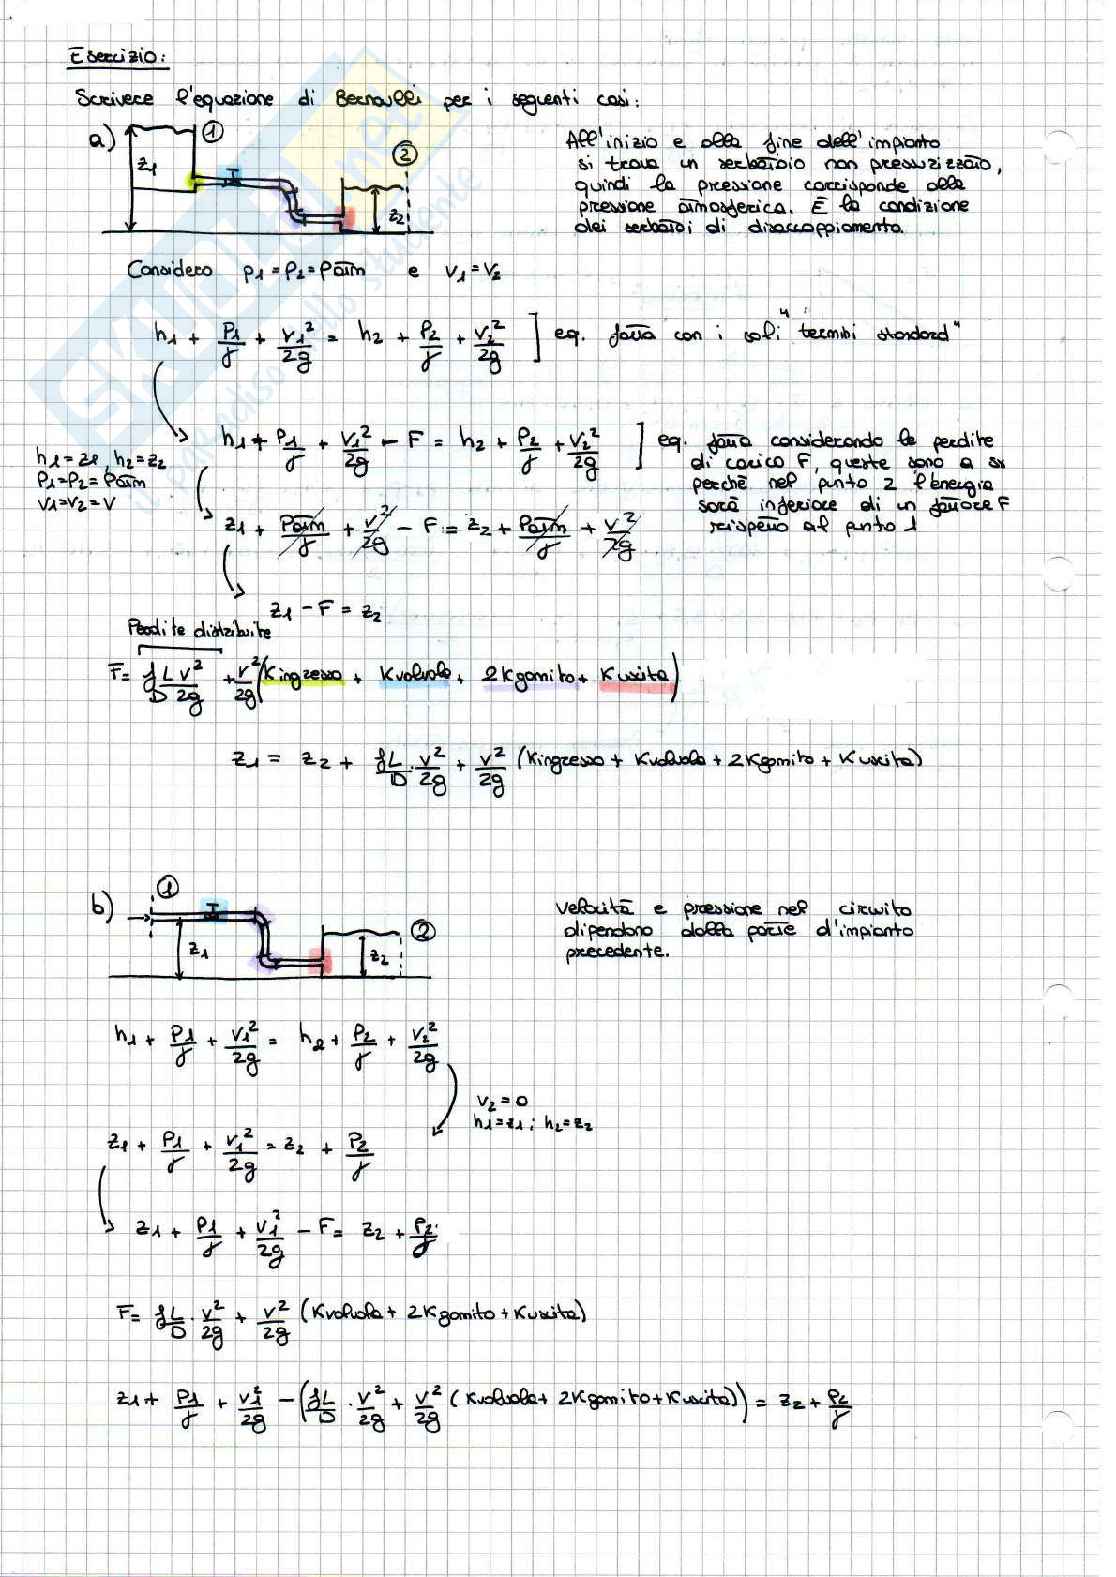 Esercizio:
Scrivere l'equazione di Bernoulli per i seguenti casi:
a)
z1
1
2
z2
All'inizio e alla fine dell'impianto
si trova un serbatoio non pressurizzato,
quindi la pressione corrisponde alla
pressione atmosferica. È la condizione
dei serbatoi di disaccoppiamento.
Considero p1 = p2 = patm e v1 = v2
h1 + p1/γ + v1²/2g = h2 + p2/γ + v2²/2g ] eq. fatta con i soli "termini standard"
h1 = z1, h2 = z2
p1 = p2 = patm
v1 = v2 = v
h1 + p1/γ + v1²/2g - F = h2 + p2/γ + v2²/2g ] eq. fatta considerando le perdite
di carico F, queste sono a sx
perchè nel punto 2 l'energia
sarà inferiore di un fattore F
rispetto al punto 1
z1 + patm/γ + v²/2g - F = z2 + patm/γ + v²/2g
z1 - F = z2
Perdite distribuite
F = f L/D v²/2g + v²/2g (Kingresso + Kvalvola + 2Kgomito + Kuscita)
z1 = z2 + fL/D · v²/2g + v²/2g (Kingresso + Kvalvola + 2Kgomito + Kuscita)
b)
1
z1
2
z2
Velocità e pressione nel circuito
dipendono dalla parte d'impianto
precedente.
h1 + p1/γ + v1²/2g = h2 + p2/γ + v2²/2g
v2 = 0
h1 = z1 ; h2 = z2
z1 + p1/γ + v1²/2g = z2 + p2/γ
z1 + p1/γ + v1²/2g - F = z2 + p2/γ
F = fL/D · v²/2g + v²/2g (Kvalvola + 2Kgomito + Kuscita)
z1 + p1/γ + v1²/2g - (fL/D · v²/2g + v²/2g (Kvalvola + 2Kgomito + Kuscita)) = z2 + p2/γ